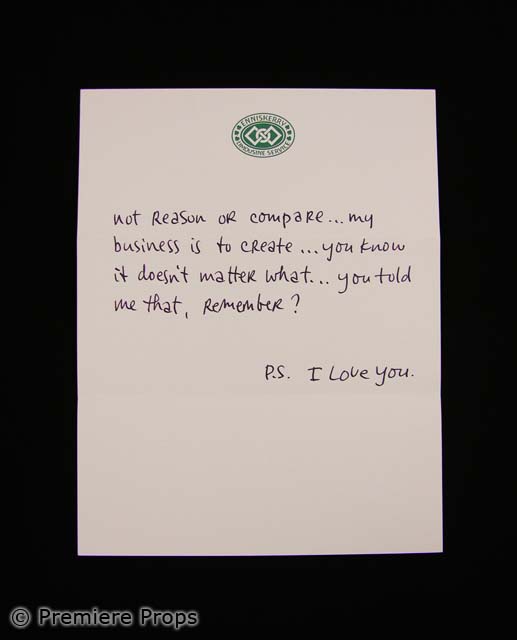 ENNISKERRY
LIMOUSINE SERVICE
not reason or compare... my
business is to create... you know
it doesn't matter what... you told
me that, remember?
P.S. I Love you.
© Premiere Props